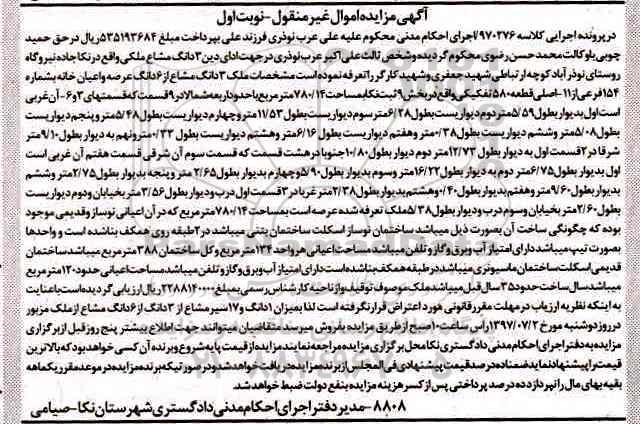 آگهی مزایده اموال غیر منقول - نوبت اول
در پرونده اجرایی کلاسه ۹۷۰۲۷۶ اجرای احکام مدنی محکوم علیه علی عرب نوذری فرزند علی بپرداخت مبلغ ۵۳۵۱۹۳۶۸۴ ریال در حق حمید
چوبی با وکالت محمدحسن رضوی محکوم گردیده و شخص ثالث علی اکبر عرب نوذری در جهت ادای دین ۳ دانگ مشاع ملکی واقع در نکا جاده نیروگاه
روستای نوذرآباد کوچه ارتباطی شهید جعفری و شهید کارگر را تعرفه نموده است مشخصات ملک ۳ دانگ مشاع از ۶ دانگ عرصه و اعیان خانه بشماره
۱۵۴ فرعی از ۱۱- اصلی قطعه ۵۸۰ تفکیکی واقع در بخش ۹ ثبت نکا بمساحت ۷۸۰/۱۴ متر مربع با حدود اربعه شمالا در ۹ قسمت که قسمتهای ۳ و ۶- آن غربی
است اول بدیوار بطول ۵/۵۹ متر دوم دیواریست بطول ۶/۲۸ متر سوم دیواریست بطول ۱۱/۵۳ متر و چهارم دیواریست بطول ۵/۴۸ متر و پنجم دیواریست
بطول ۵/۰۸ متر و ششم دیواریست بطول ۰/۳۸ متر و هفتم دیواریست بطول ۶/۱۶ متر و هشتم دیواریست بطول ۰/۳۳ متر و نهم به دیوار بطول ۹/۱۰ متر
شرقا در ۲ قسمت اول به دیوار بطول ۱۲/۷۳ متر دوم دیواریست بطول ۱۰/۸۰ جنوبا در هشت قسمت که قسمت سوم آن شرقی قسمت هفتم آن غربی است
اول بدیوار بطول ۶/۷۵ متر دوم به دیوار بطول ۱۶/۲۲ متر وسوم بدیوار بطول ۵/۹۰ و چهارم بدیوار بطول ۲/۶۵ متر و پنجم به دیوار بطول ۲/۷۵ متر و ششم
بدیوار بطول ۹/۶۰ متر و هفتم بدیوار بطول ۰/۴۰ و هشتم بدیوار بطول ۲/۳۸ متر غربا در ۳ قسمت اول درب و دیوار بطول ۳/۵۶ متر بخیابان و دوم دیواریست
بطول ۲/۶۰ متر بخیابان وسوم درب و دیوار بطول ۵/۳۸ ملک تعرفه شده عرصه است بمساحت ۷۸۰/۱۴ متر مربع که در آن اعیانی نوساز و قدیمی موجود
بوده که چگونگی ساخت آن بصورت ذیل میباشد ساختمان نوساز اسکلت ساختمان بتنی میباشد در ۲ طبقه روی همکف بنا شده است و واحدها
بصورت تیپ میباشد دارای امتیاز آب و برق و گاز و تلفن میباشد مساحت اعیانی هر واحد ۱۳۴ متر مربع و کل ساختمان ۳۸۸ متر مربع میباشد ساختمان
قدیمی اسکلت ساختمان ماسیونری میباشد در طبقه همکف بنا شده است دارای امتیاز آب و برق و گاز و تلفن میباشد مساحت اعیانی حدود ۱۳۰ متر مربع
میباشد سال ساخت حدود ۳۵ سال قبل میباشد ملک موصوف توقیف و از ناحیه کارشناس رسمی بمبلغ ۲۲۸۸۱۴۰۰۰۰ ریال ارزیابی گردیده است با عنایت
به اینکه نظریه ارزیاب در مهلت مقرر قانونی مورد اعتراض قرار نگرفته است لذا بمیزان ۱ دانگ و ۱۷ سیر مشاع از ۳ دانگ از ۶ دانگ مشاع از ملک مزبور
در روز دوشنبه مورخ ۱۳۹۷/۰۷/۲ راس ساعت ۱۰ صبح از طریق مزایده بفروش میرسد متقاضیان میتوانند جهت اطلاع بیشتر پنج روز قبل از برگزاری
مزایده به دفتر اجرای احکام مدنی دادگستری نکا محل برگزاری مزایده مراجعه نمایند مزایده از قیمت پایه شروع و برنده آن کسی خواهد بود که بالاترین
قیمت را پیشنهاد نماید ضمنا ده درصد قیمت پیشنهادی فی المجلس از برنده مزایده دریافت خواهد شد و در صورتیکه برنده مزایده در موعد مقرر یکماهه
بقیه بهای مال را نپردازد ده درصد پرداختی پس از کسر هزینه مزایده بنفع دولت ضبط خواهد شد.
۸۸۰۸- مدیر دفتر اجرای احکام مدنی دادگستری شهرستان نکا - صیامی